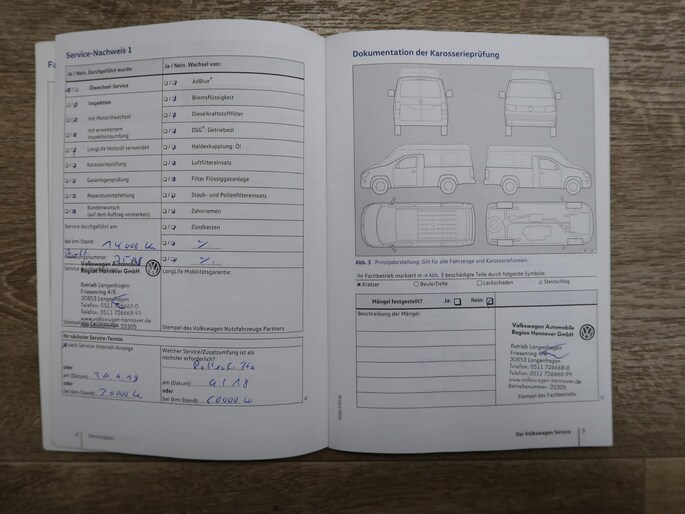 Service-Nachweis 1
Ja / Nein. Durchgeführt wurde:
Ölwechsel-Service
Inspektion
mit Motorölwechsel
mit erweitertem
Inspektionsumfang
LongLife Motoröl verwendet
Karosserieprüfung
Gasanlagenprüfung
Reparaturempfehlung
Kundenwunsch
(auf dem Auftrag vermerken)
Service durchgeführt am:
bei km-Stand: 14000 k
Volkswagen Automobile
Region Hannover GmbH
Betrieb Langenhagen
Friesenring 4/8
30853 Langenhagen
Telefon: 0511 726668-0
Telefax: 0511 726668-99
www.volkswagen-hannover.de
22305
Ihr nächster Service-Termin
nach Service-Intervall-Anzeige
oder
am (Datum):
oder
bei (km-Stand):
6 Serviceplan
Ja / Nein. Wechsel von:
AdBlue®
Bremsflüssigkeit
Dieselkraftstofffilter
DSG®: Getriebeöl
Haldexkupplung: Öl
Luftfiltereinsatz
Filter Flüssiggasanlage
Staub- und Pollenfiltereinsatz
Zahnriemen
Zündkerzen
LongLife Mobilitätsgarantie:
Stempel des Volkswagen Nutzfahrzeuge Partners
Welcher Service/Zusatzumfang ist als
nächster erforderlich?
am (Datum):
oder
bei (km-Stand):
Dokumentation der Karosserieprüfung
Abb. 3 Prinzipdarstellung: Gilt für alle Fahrzeuge und Karosserieformen.
Ihr Fachbetrieb markiert in → Abb. 3 beschädigte Teile durch folgende Symbole:
✕ Kratzer ○ Beule/Delle □ Lackschaden △ Steinschlag
Mängel festgestellt? Ja: Nein:
Beschreibung der Mängel:
Volkswagen Automobile
Region Hannover GmbH
Betrieb Langenhagen
Friesenring
30853 Langenhagen
Telefon: 0511 726668-0
Telefax: 0511 726668-99
www.volkswagen-hannover.de
Betriebsnummer: 22305
Stempel des Fachbetriebs
Der Volkswagen Service